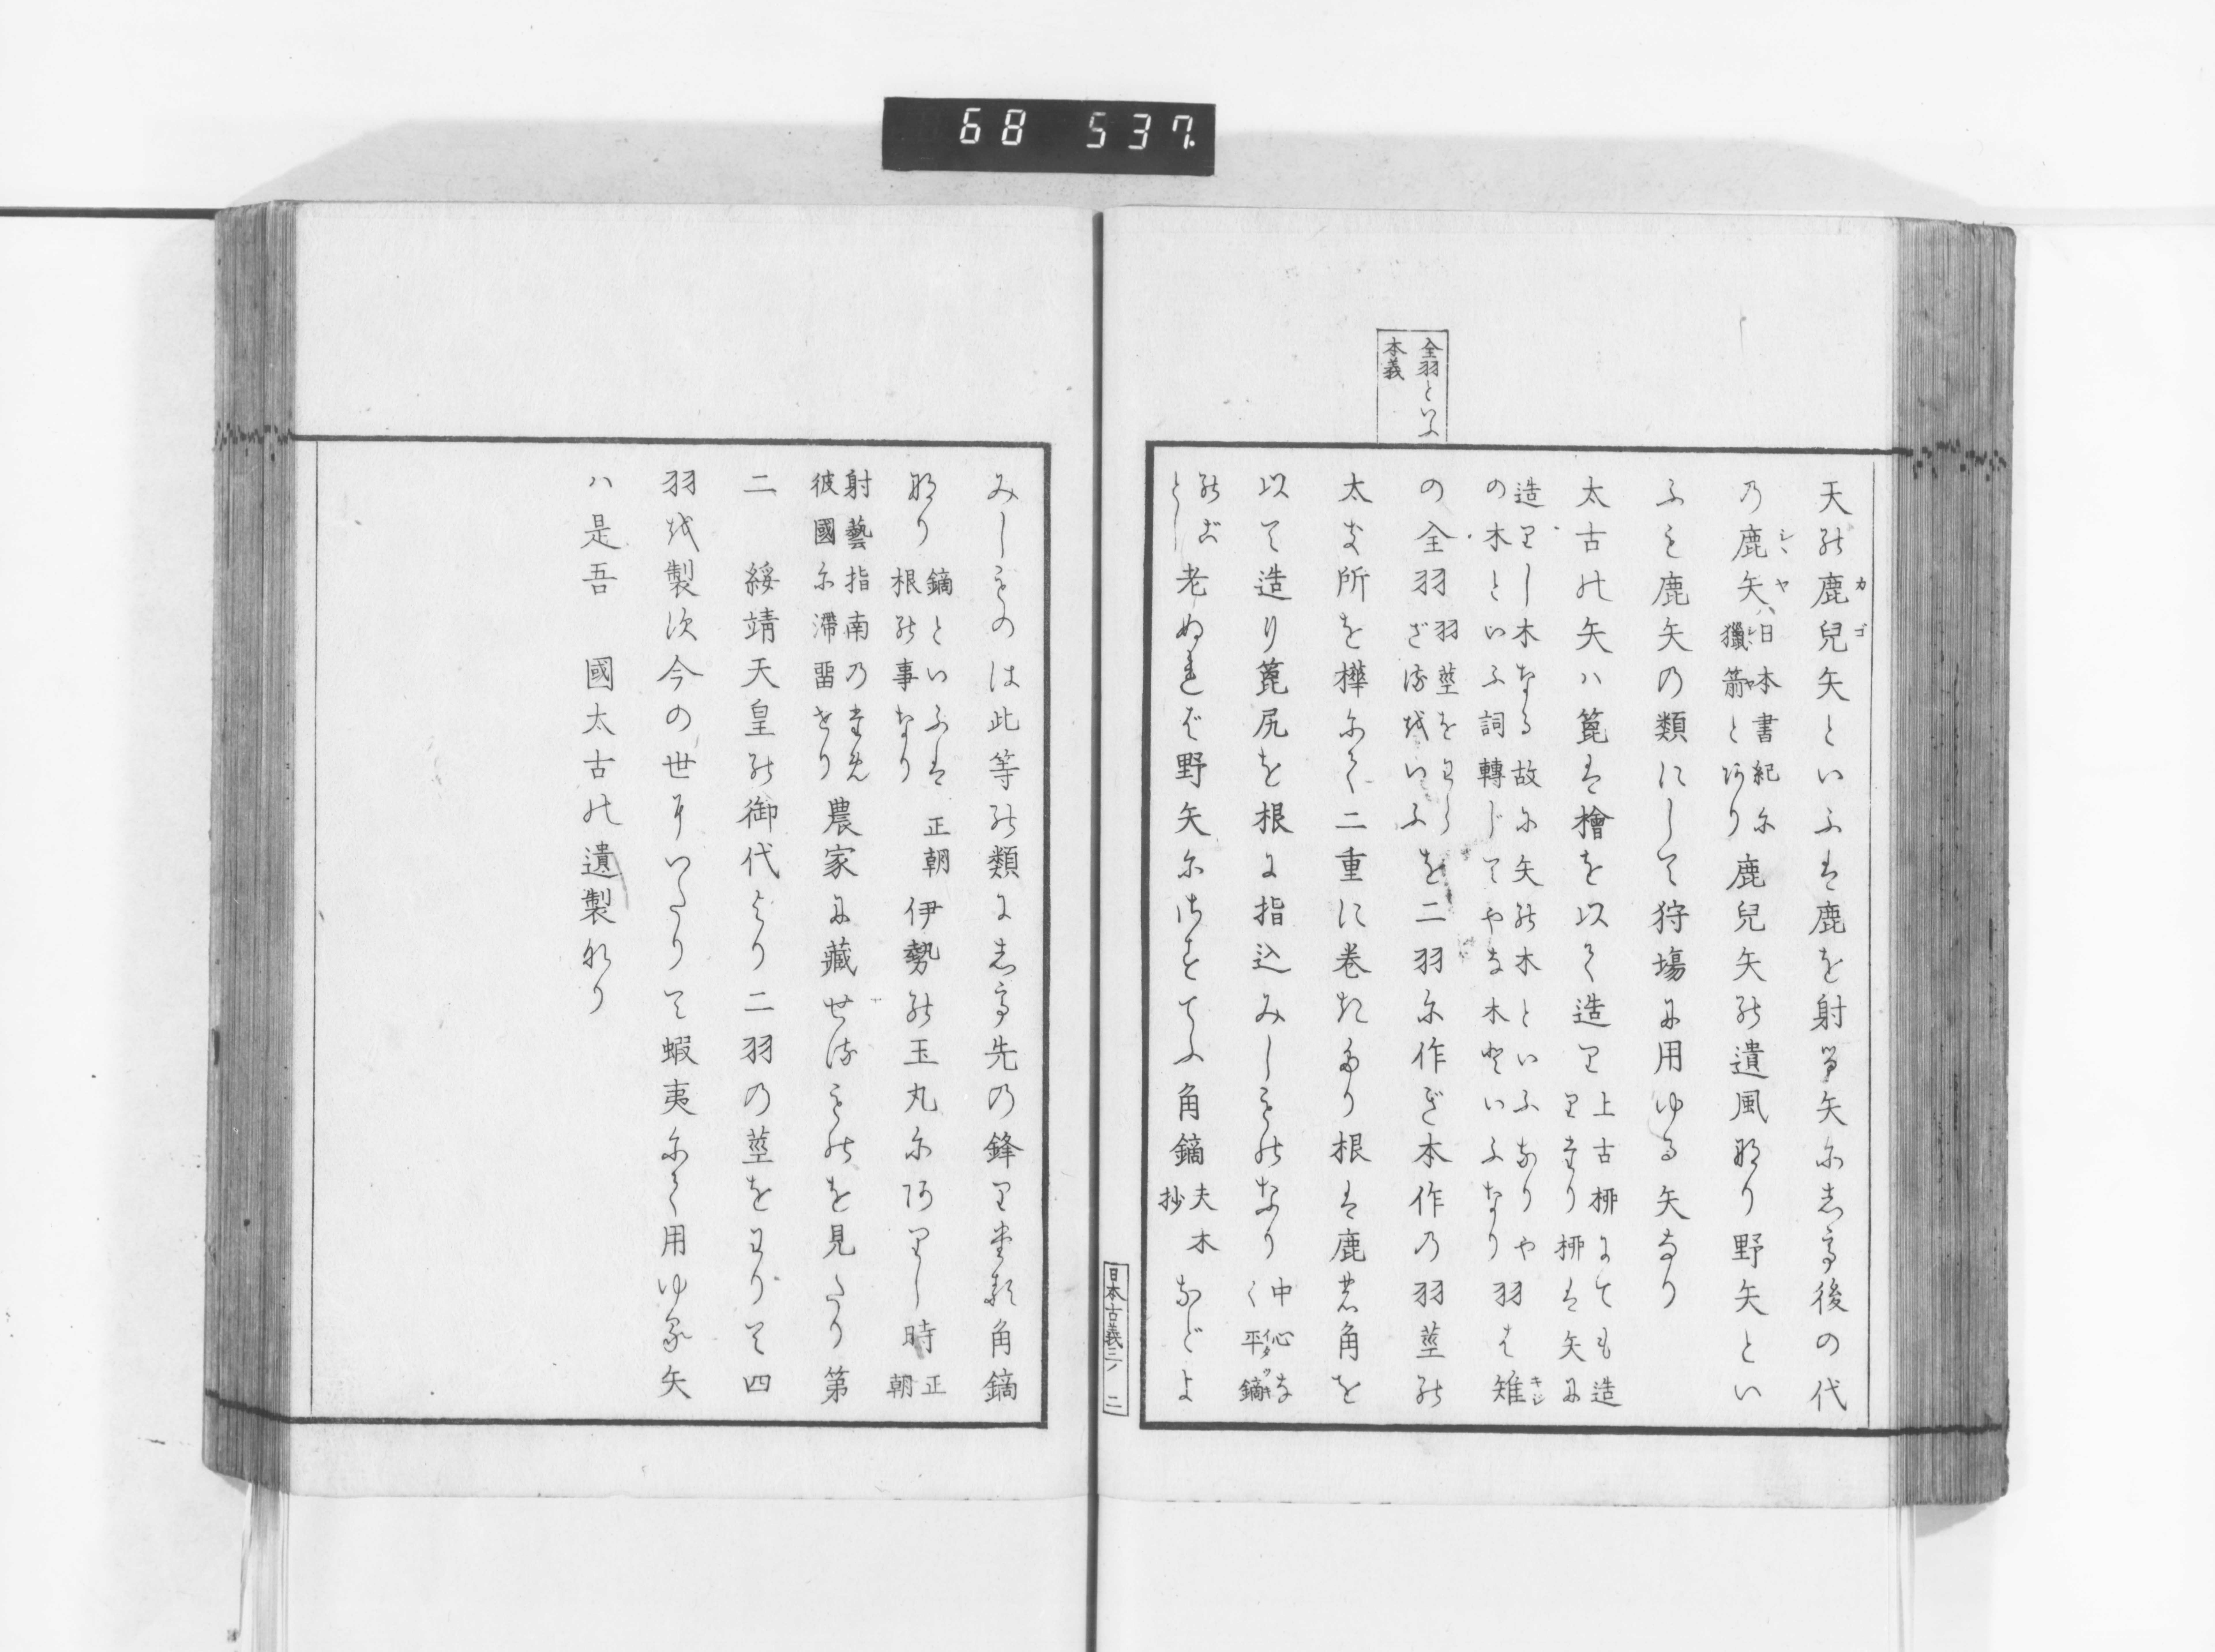 68 537
全羽といふ
本義
天の鹿兒矢といふは鹿を射る矢にして後の代
カゴ
の鹿矢ハ
シヽヤ
日本書紀に
獵箭とあり
シヽヤ
鹿兒矢の遺風なり野矢とい
ふも鹿矢の類にして狩塲に用ゆる矢なり
太古の矢ハ箆は檜を以て造り
上古柳にても造
りたり柳は矢に
造りし木なる故に矢の木といふなりや
の木といふ詞轉じてやな木といふなり
羽は雉
キジ
の全羽
羽莖をわら
ざるをいふ
を二羽に作ぎ本作の羽莖の
太き所を樺にて二重に卷たり根は鹿の角を
以て造り箆尻を根に指込みしものなり
中心な
く平鏑
イタツキ
のごとし
老ぬれば野矢にさすてふ角鏑
夫木
抄
などよ
日本古義三ノ 二
みしものは此等の類にして先の鋒りたる角鏑
なり
鏑といふは
根の事なり
正朝
伊勢の玉丸にありし時
正
朝
射藝指南のため
彼國に滯畱せり
農家に藏せるものを見たり第
二 綏靖天皇の御代より二羽の莖をわりて四
羽を製次今の世までいたりて蝦夷にて用ゆる矢
ハ是吾 國太古の遺製なり